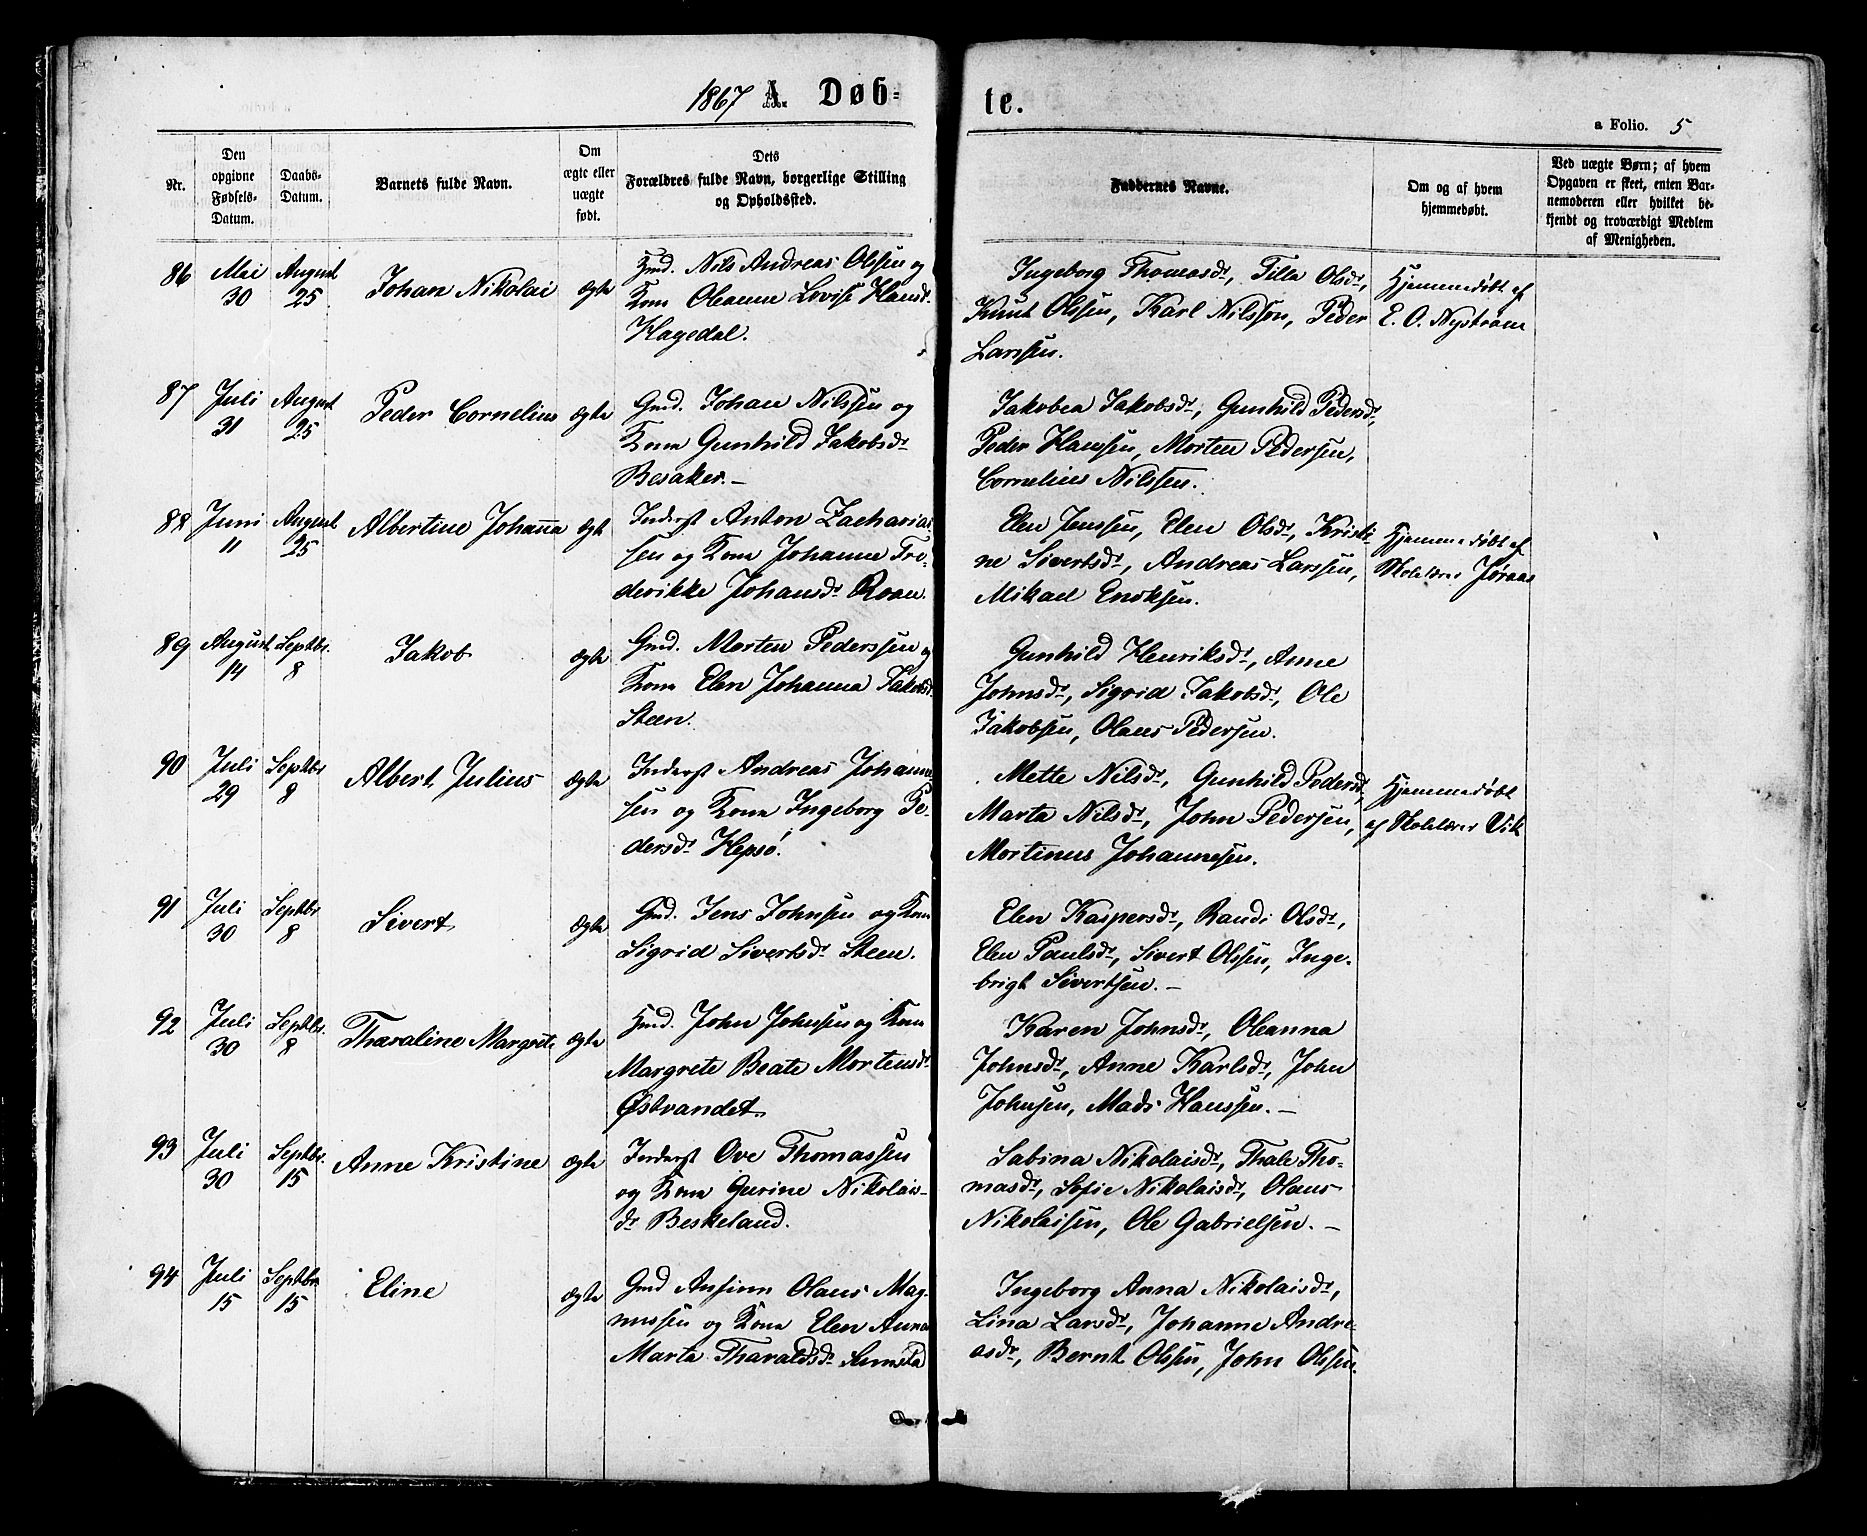 1867 A. Døb-
te.
a Folio. 5
Nr.
Den
opgivne
Fødsels-
Datum.
Daabs-
Datum.
Barnets fulde Navn.
Om
ægte eller
uægte
født.
Dets
Forældres fulde Navn, borgerlige Stilling
og Opholdssted.
Faddernes Navne.
Om og af hvem
hjemmedøbt.
Ved uægte Børn; af hvem
Opgaven er skeet, enten Bar-
nemoderen eller hvilket be-
kjendt og troværdigt Medlem
af Menigheden.
86 Mai 30 August 25 Johan Nikolai ægte
Gmd. Nils Andreas Olsen og
Kone Oleanne Lovise Hansdr
Hagedal.
Ingeborg Thomasdr, Tilla Olsdr,
Knut Olssen, Karl Nilsson, Peder
Larssen.
Hjemmedøbt af
E. O. Nystrøm
87 Juli 31 August 25 Peder Cornelius ægte
Gmd. Johan Nilssen og
Kone Gunhild Jakobsdr
Besaker. —
Jakobea Jakobsdr, Gunhild Pedersdr,
Peder Hansen, Morten Pedersen,
Cornelius Nilssen.
88 Juni 11 August 25 Albertine Johanna ægte
Inderst Anton Zacharias-
sen og Kone Johanne Fre-
derikke Johansdr Roan.
Elen Jenssen, Elen Olsdr, Kristi-
ne Sivertsdr, Andreas Larssen,
Mikael Enoksen.
Hjemmedøbt af
Skolelærer Jøraas
89 August 14 Septbr. 8 Jakob ægte
Gmd. Morten Pederssen og
Kone Elen Johanna Jakobsdr
Steen.
Gunhild Henriksdr, Anne
Johnsdr, Sigrid Jakobsdr, Ole
Jakobsen, Olaus Pedersen.
90 Juli 29 Septbr 8 Albert Julius ægte
Inderst Andreas Johanne-
sen og Kone Ingeborg Pe-
dersdr Hepsø.
Mette Nilsdr, Gunhild Pedersdr,
Marta Nilsdr, John Pedersen,
Mortinus Johannesen.
Hjemmedøbt
af Skolelærer Vik
91 Juli 30 Septbr 8 Sivert ægte
Gmd. Jens Johnsen og Kone
Sigrid Sivertsdr Steen.
Elen Kaspersdr, Randi Olsdr,
Elen Paulsdr, Sivert Olssen, Inge-
brigt Sivertsen. —
92 Juli 30 Septbr. 8 Tharaline Margrete ægte
Gmd. John Johnsen og Kone
Margrete Beate Mortensdr
Østvandet.
Karen Johnsdr, Oleanna
Johnsdr, Anne Karlsdr, John
Johnsen, Mads Hanssen. —
93 Juli 30 Septbr. 15 Anne Kristine ægte
Inderst Ove Thomassen
og Kone Gurine Nikolais-
dr Beskeland.
Sabina Nikolaisdr, Thale Tho-
masdr, Sofie Nikolaisdr, Olaus
Nikolaisen, Ole Gabrielsen. —
94 Juli 15 Septbr 15 Eline ægte
Gmd Ansinn Olaus Mag-
nussen og Kone Elen Anna
Marta Tharaldsdr Sumstad
Ingeborg Anna Nikolaisdr,
Lina Larsdr, Johanne Andre-
asdr, Bernt Olssen, John Olssen.